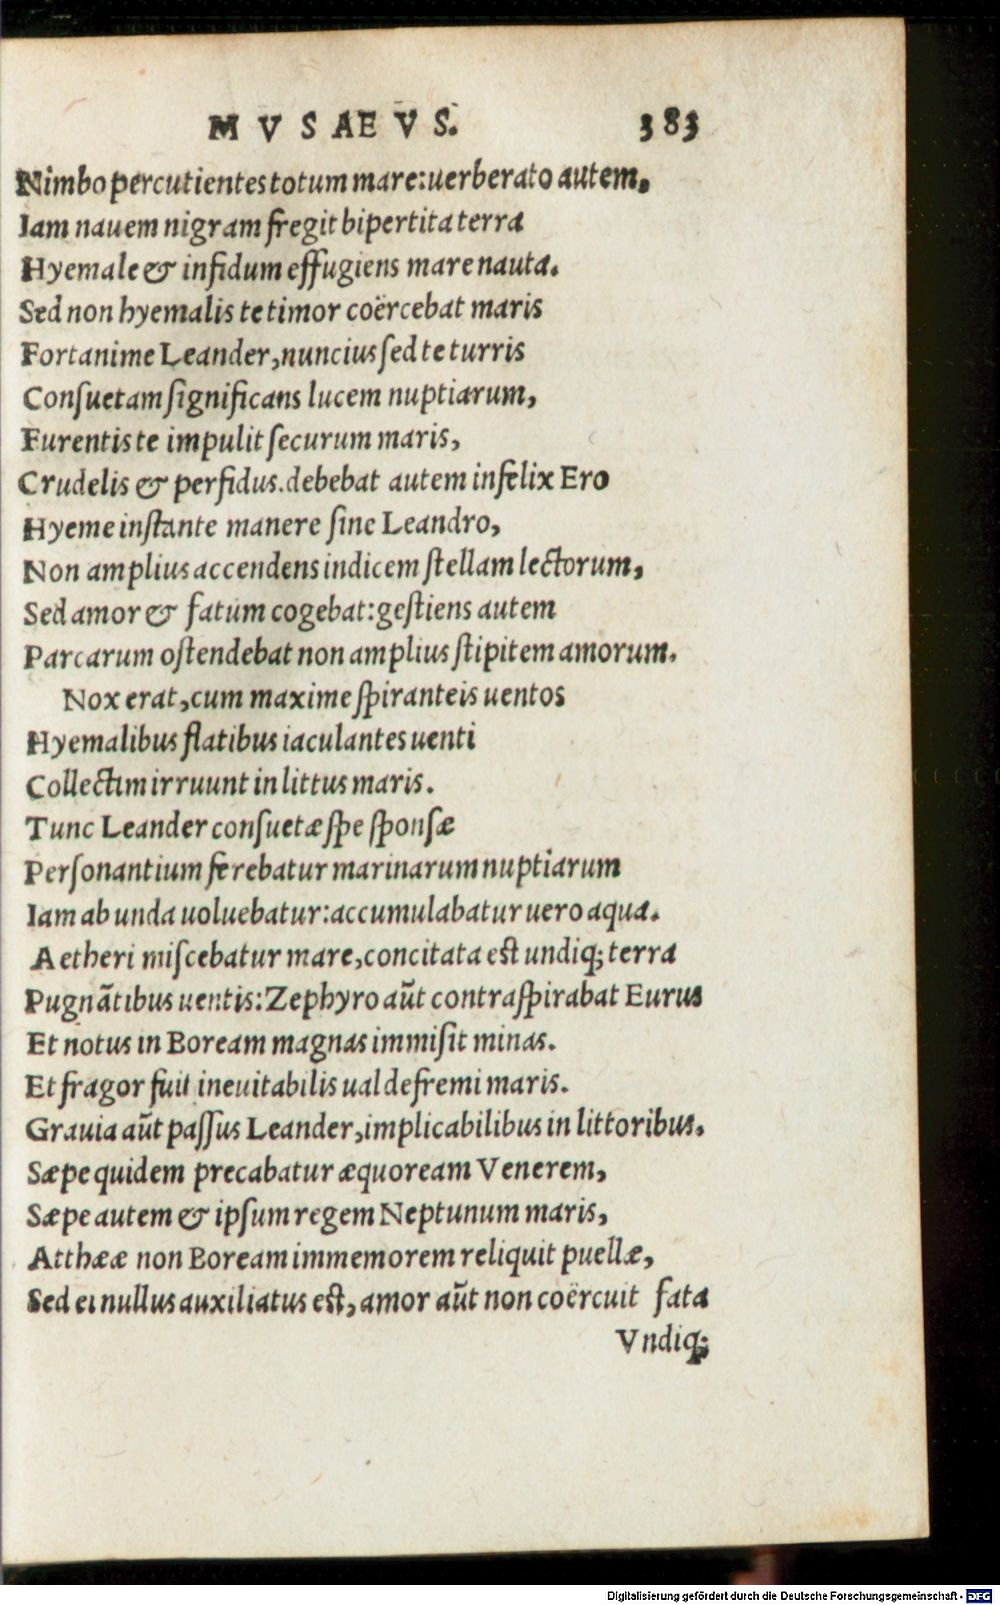 MVSAEVS. 383
Nimbo percutientes totum mare: uerberato autem.
Iam nauem nigram fregit bipertita terra
Hyemale & infidum effugiens mare nauta.
Sed non hyemalis te timor coërcebat maris
Fortanime Leander, nuncius sed te turris
Consuetam significans lucem nuptiarum,
Furentis te impulit securum maris,
Crudelis & perfidus. debebat autem infelix Ero
Hyeme instante manere sine Leandro,
Non amplius accendens indicem stellam lectorum,
Sed amor & fatum cogebat: gestiens autem
Parcarum ostendebat non amplius stipitem amorum.
Nox erat, cum maxime spiranteis uentos
Hyemalibus flatibus iaculantes uenti
Collectim irruunt in littus maris.
Tunc Leander consuetæ spe sponsæ
Personantium ferebatur marinarum nuptiarum
Iam ab unda uoluebatur: accumulabatur uero aqua.
Aetheri miscebatur mare, concitata est undiq; terra
Pugnãtibus uentis: Zephyro aũt contra spirabat Eurus
Et notus in Boream magnas immisit minas.
Et fragor fuit ineuitabilis ualde fremi maris.
Grauia aũt passus Leander, implicabilibus in littoribus.
Sæpe quidem precabatur æquoream Venerem,
Sæpe autem & ipsum regem Neptunum maris,
Atthææ non Boream immemorem reliquit puellæ,
Sed ei nullus auxiliatus est, amor aũt non coërcuit fata
Vndiq;
Digitalisierung gefördert durch die Deutsche Forschungsgemeinschaft - DFG